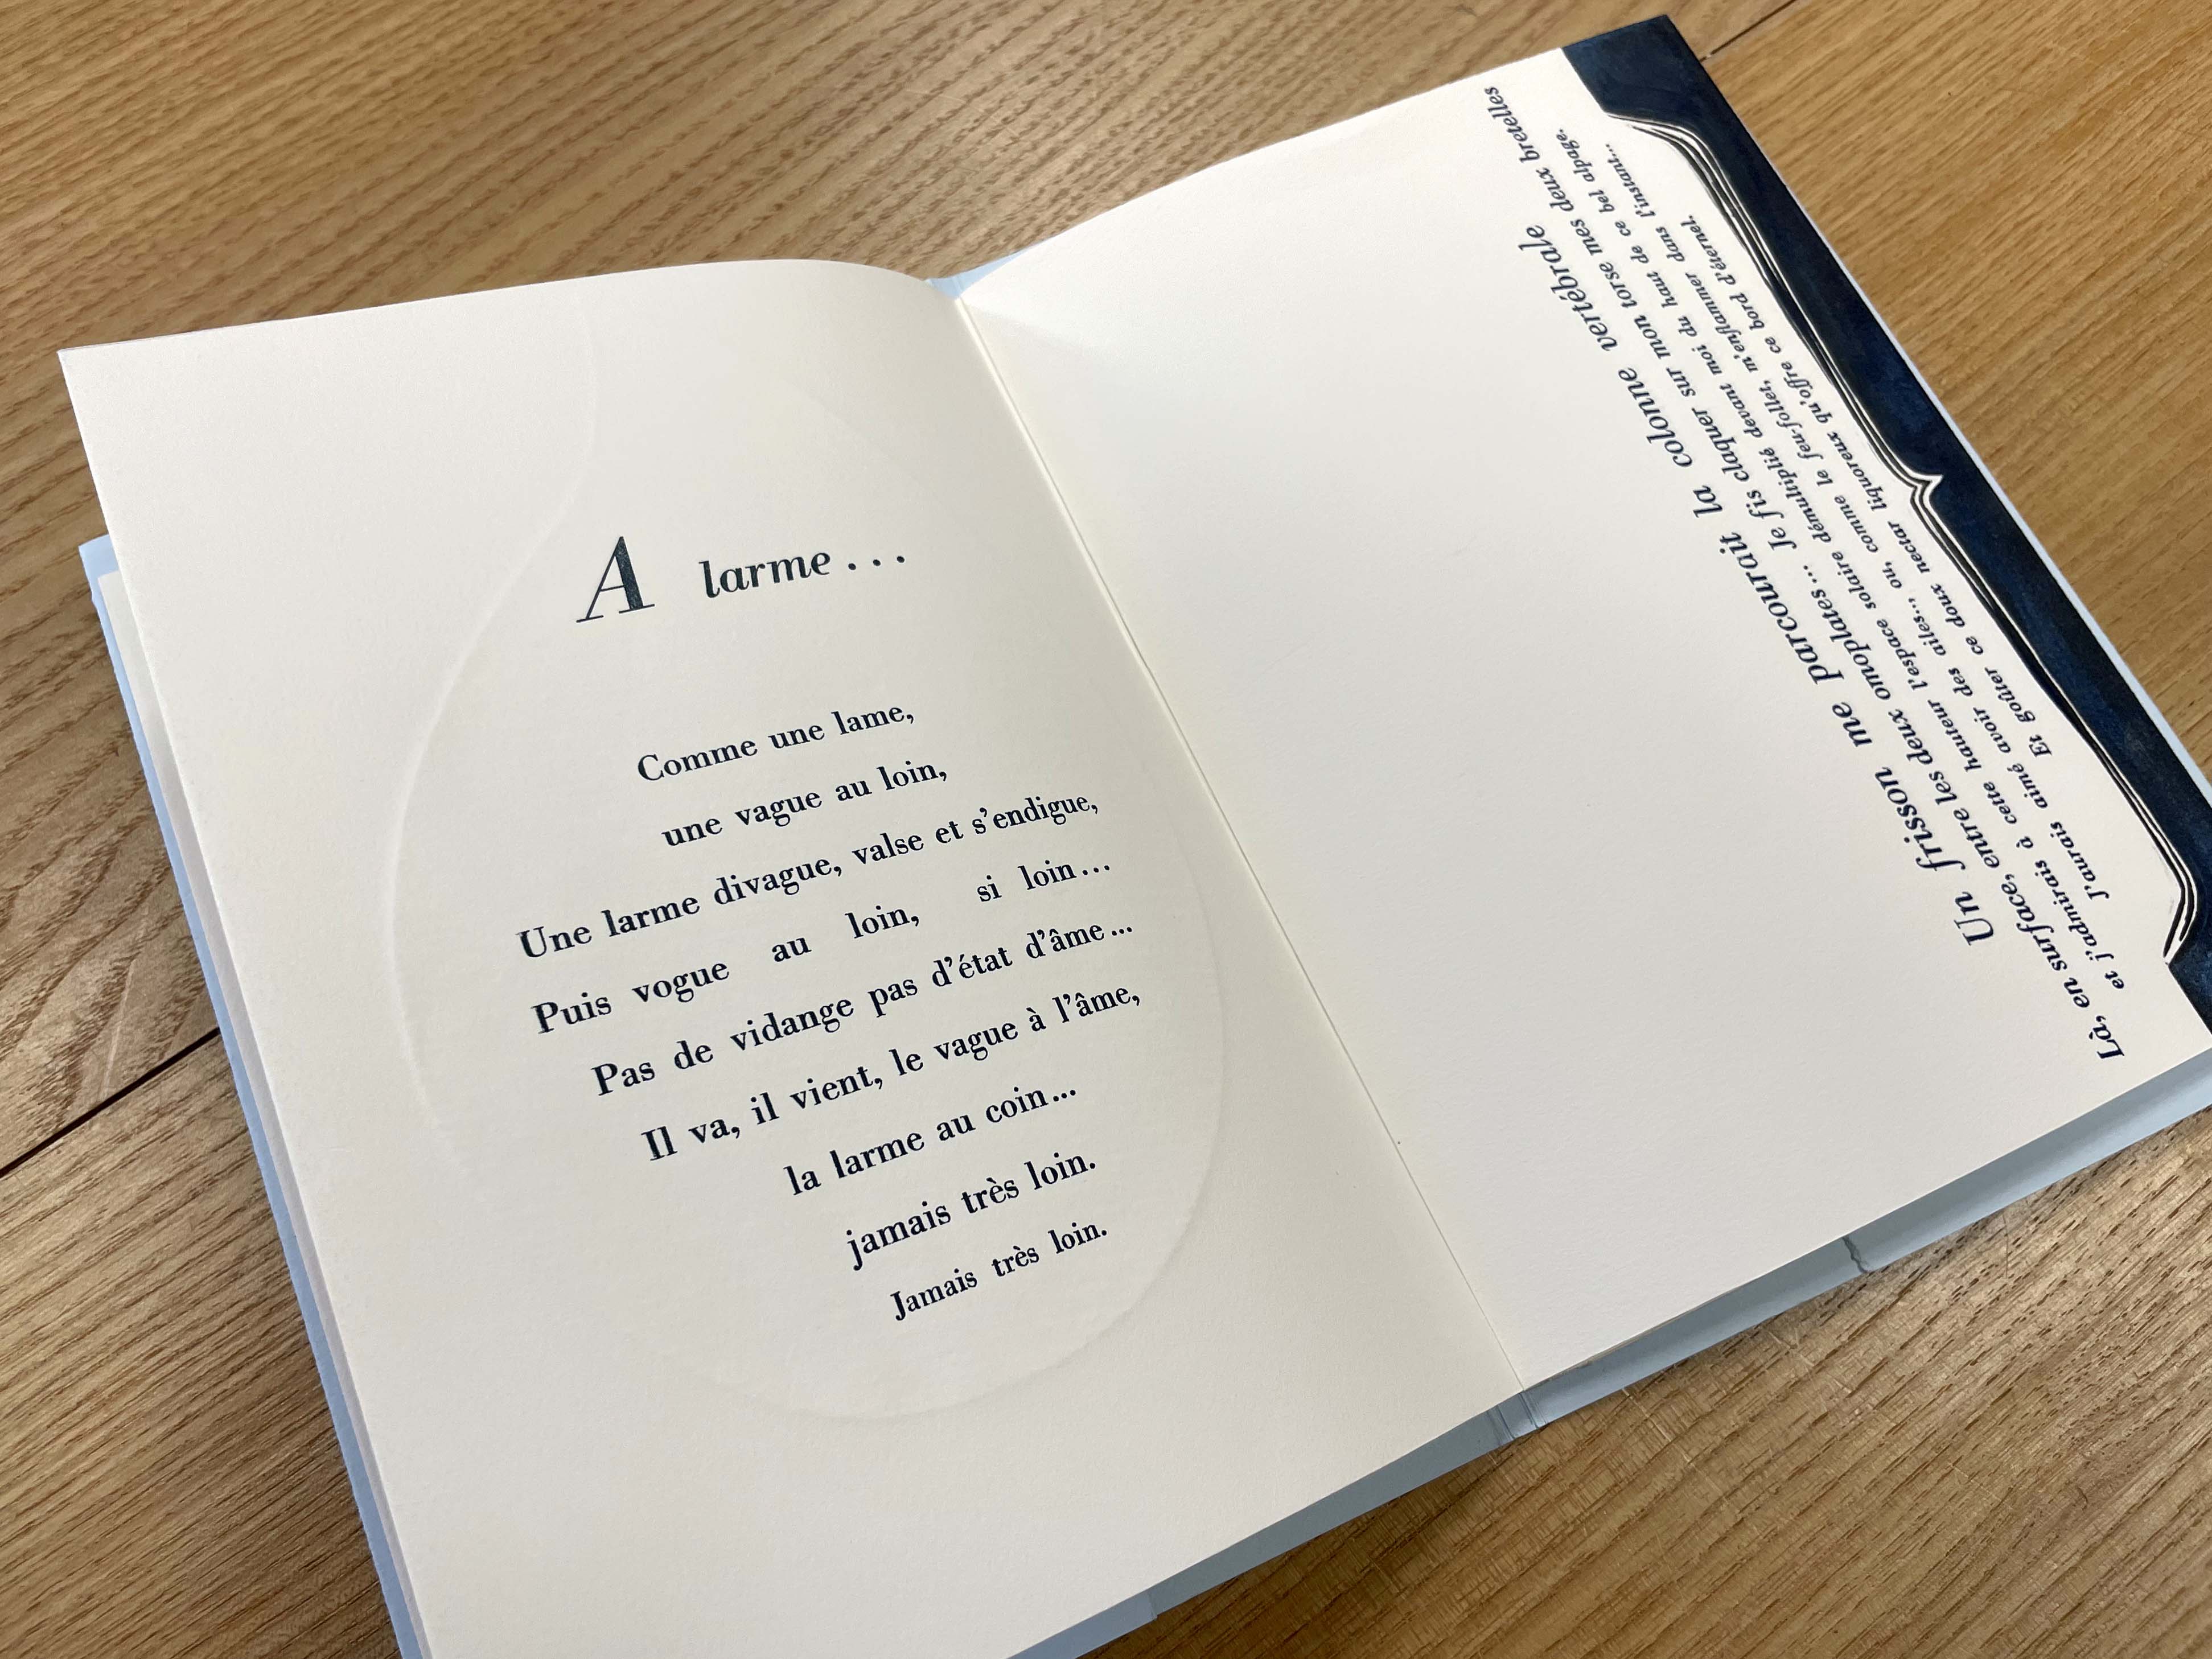 A larme...
Comme une lame,
une vague au loin,
Une larme divague, valse et s'endigue,
Puis vogue au loin, si loin...
Pas de vidange pas d'état d'âme...
Il va, il vient, le vague à l'âme,
la larme au coin...
jamais très loin.
Jamais très loin.
Un frisson me parcourait la colonne vertébrale
Là, en surface, entre les deux omoplates... Je fis claquer sur mon torse mes deux bretelles
et j'admirais à cette hauteur l'espace solaire démultiplié devant moi du haut de ce bel alpage.
J'aurais aimé avoir des ailes... ou, comme le feu-follet, m'enflammer dans l'instant...
Et goûter ce doux nectar liquoreux qu'offre ce bord d'éternel.